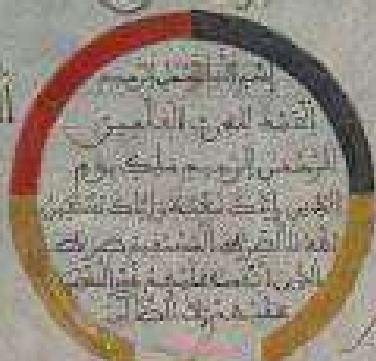 بسم الله الرحمن الرحيم
الحمد لله رب العلمين
الرحمن الرحيم ملك يوم
الدين إياك نعبد وإياك نستعين
اهدنا الصراط المستقيم صراط
الذين أنعمت عليهم غير المغضوب
عليهم ولا الضالين